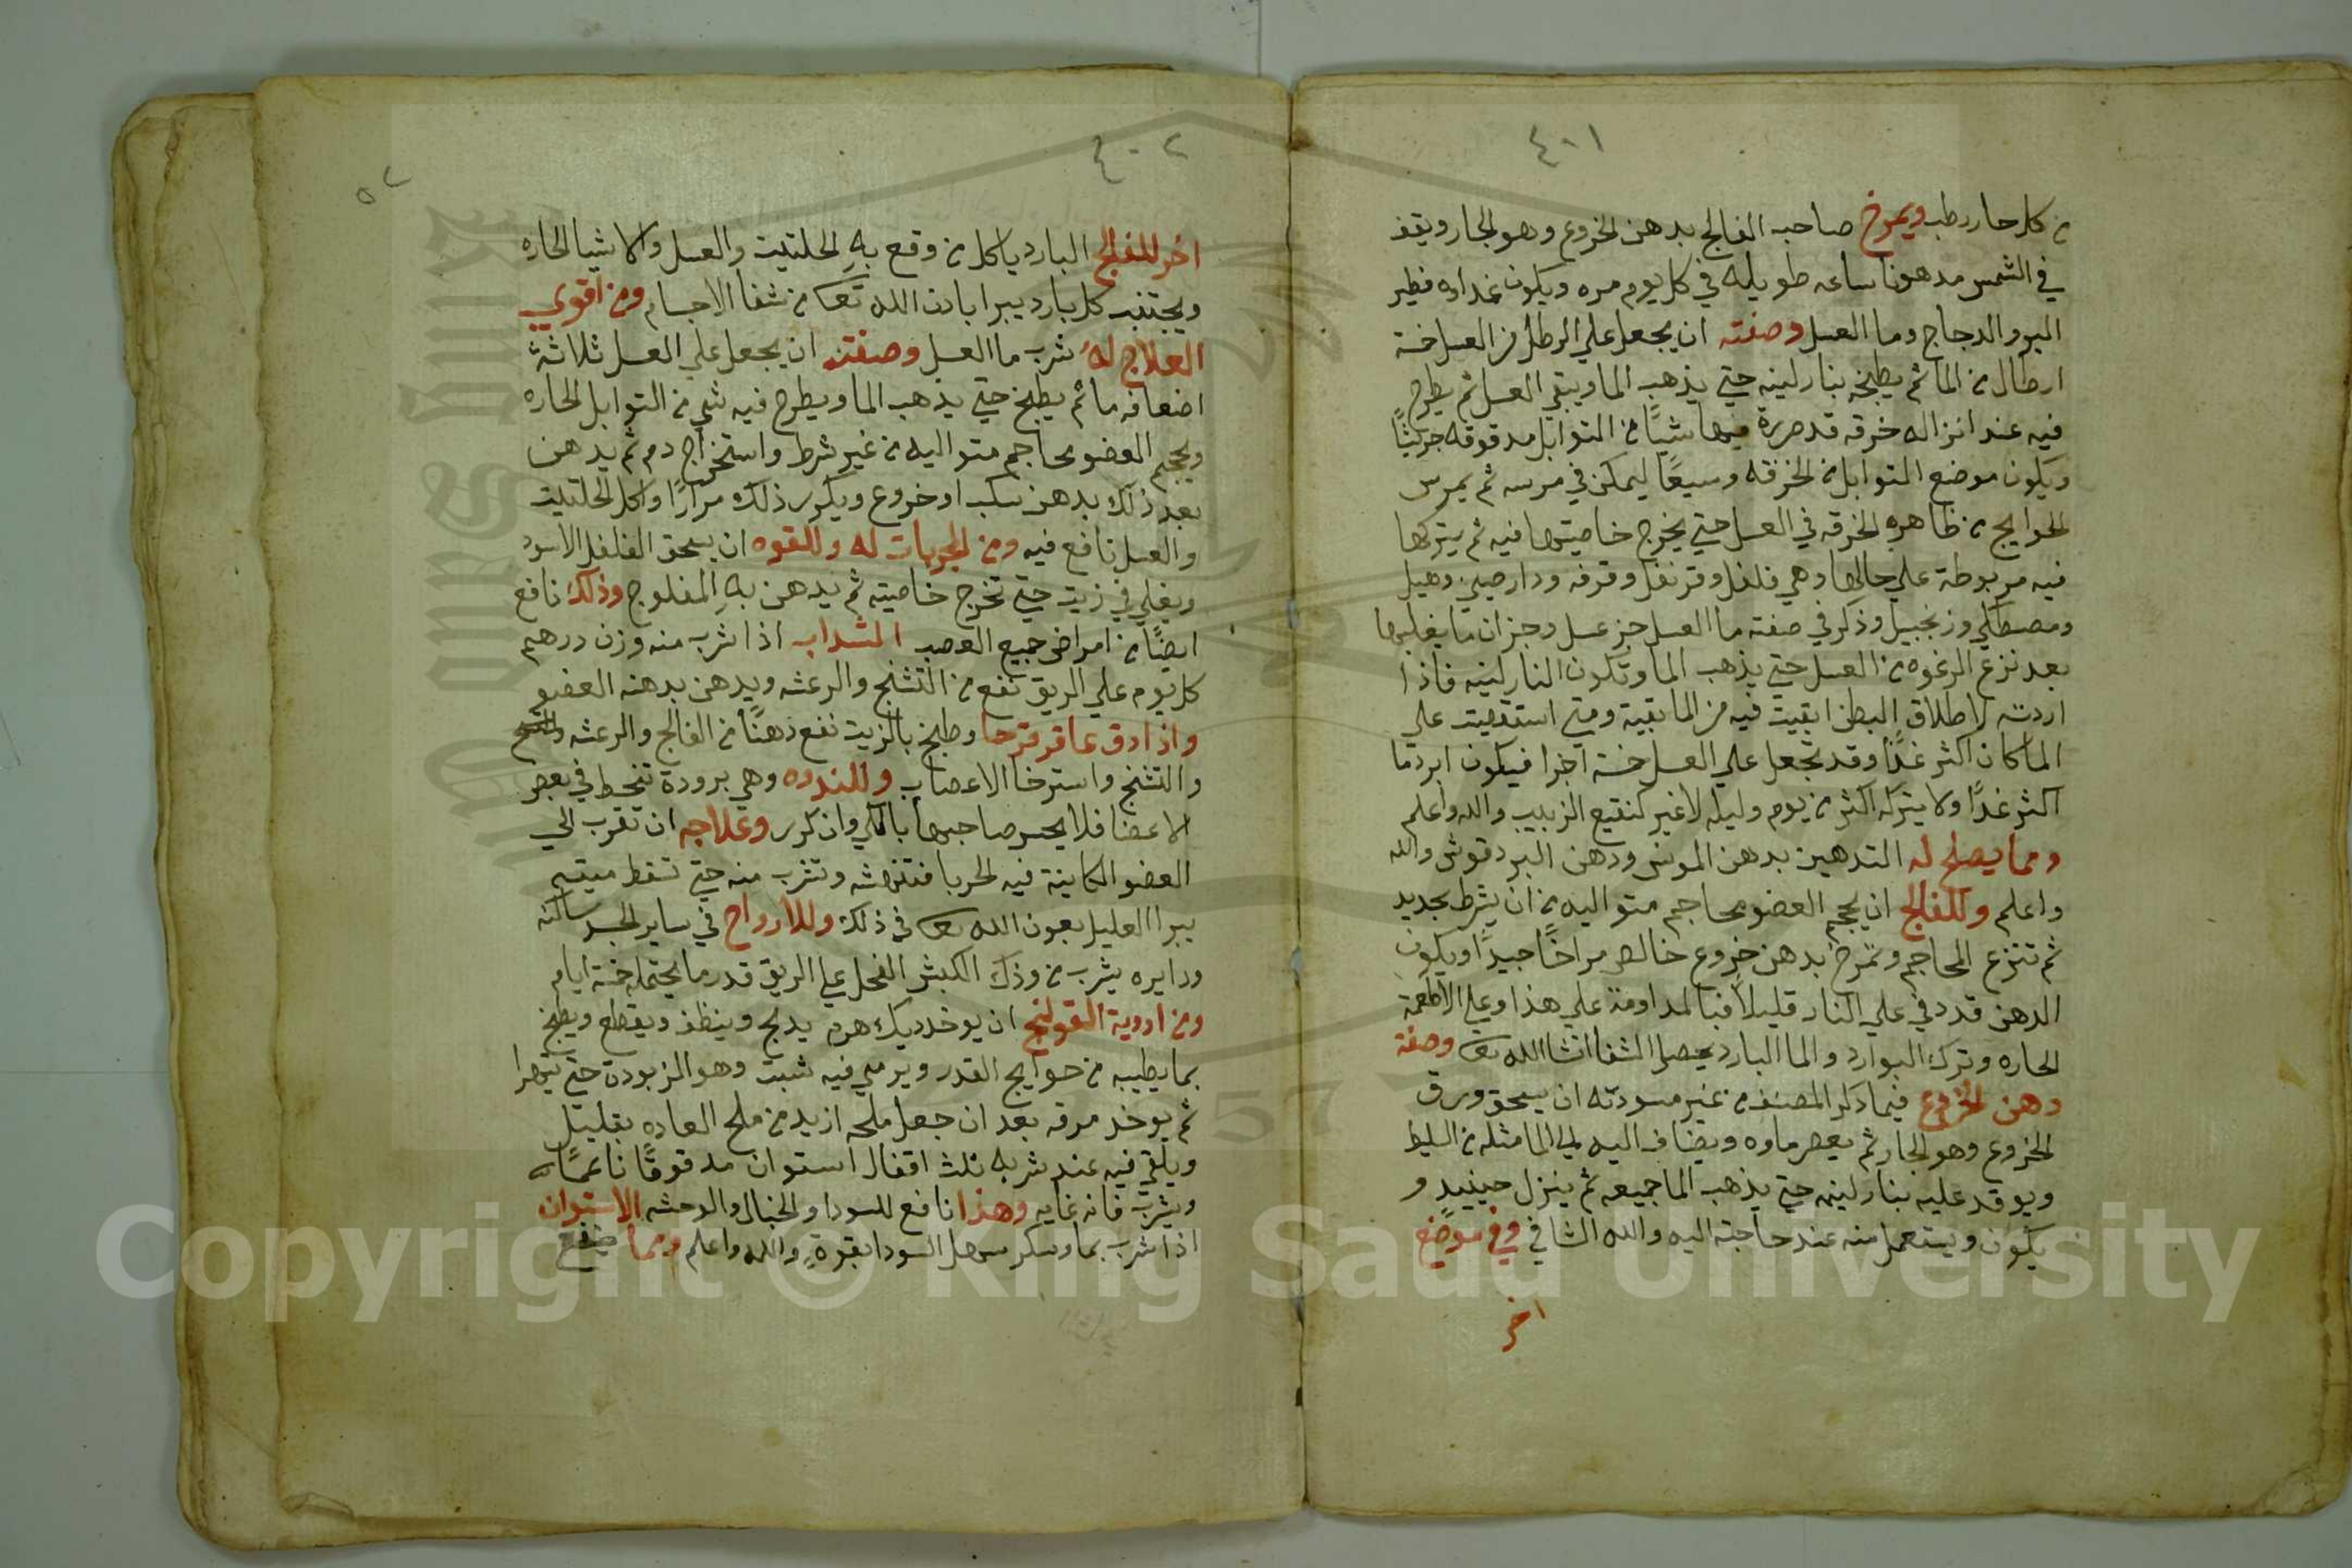 ٤٠١
من كل حار رطب ويمرخ صاحب الفالج بدهن الخروع وهو الجار ويقف
في الشمس مدهونا ساعه طويله في كل يوم مره ويكون غداوه فطير
البر والدجاج وما العسل وصفته ان يجعل علي الرطل من العسل خمسة
ارطال من الما ثم يطبخه بنار لينه حتي يذهب الما ويبقي العسل ثم يطرح
فيه عند انزاله خرقه قد صررة فيها شيًا من التوابل مدقوقه جريشًا
ويكون موضع التوابل من الخرقه وسيعًا ليمكن في مرسه ثم يمرس
الحوايج من ظاهر الخرقه في العسل حتي يخرج خاصيتها فيه ثم يتركها
فيه مربوطة علي حالها وهي فلفل وقرنفل وقرفه ودارصيني وهيل
ومصطكي وزنجبيل وذكر في صفته ما العسل جز عسل وجزان ما يغليها
بعد نزع الرغوه من العسل حتي يذهب الما وتكون النار لينه فاذا
اردته لاطلاق البطن ابقيت فيه من الما بقية ومتي استقصيت علي
الما كان اكثر غذًا وقد تجعل علي العسل خمسة اجزا فيكون ابرد ما
اكثر غدًا ولا يتركه اكثر من يوم وليله لا غير كنقيع الزبيب والله واعلم
ومما يصلح له التدهين بدهن الموس ودهن البردقوش والله
واعلم وللفالج ان يحجم العضو بمحاجم متواليه من ان يشرط بجديد
ثم تنزع المحاجم وتمرخ بدهن خروع خالص مراخًا جيدًا ويكون
الدهن قد دفي علي النار قليلًا فبالمداومة علي هذا وعلي الاطعمة
الحاره وترك البوارد والما البارد يحصل الشفا انشا الله تعا وصفة
دهن الخروع فيما ذكر المصنف من غير مسودته ان يسحق ورق
الخروع وهو الجار ثم يعصر ماوه ويضاف اليه الي الما مثله من السليط
ويوقد عليه بنار لينه حتي يذهب الما جميعه ثم ينزل حينيدٍ و
يكون ويستعمل منه عند حاجته اليه والله الشافي وفي موضع
اخر
٤٠٢
٥٢
اخر للفالج البارد ياكل من وقع به الحلتيت والعسل والاشيا الحاره
ويجتنب كل بارد يبرا باذن الله تعا من شفا الاجسام ومن اقوي
العلاج له شرب ما العسل وصفته ان يجعل علي العسل ثلاثة
اضعافه ما ثم يطبخ حتي يذهب الما ويطرح فيه شي من التوابل الحاره
ويحجم العضو بمحاجم متواليه من غير شرط واستخراج دم ثم يدهن
بعد ذلك بدهن سكب او خروع ويكرر ذلك مرارًا واكل الحلتيت
والعسل نافع فيه ومن المجربات له وللقوه ان يسحق الفلفل الاسود
ويغلي في زيت حتي تخرج خاصيته ثم يدهن به المفلوج وذلك نافع
ايضًا من امراض جميع العصب السداب اذا شرب منه وزن درهم
كل يوم علي الريق نفع من التشنج والرعشه ويدهن بدهنه العضو
واذا دق عاقر قرحا وطبخ بالزيت نفع دهنًا من الفالج والرعشه
والتشنج واسترخا الاعصاب وللندوه وهي برودة تنحط في بعض
الاعضا فلا يحس صاحبها بالكي وان كرر وعلاجه ان تقرب الي
العضو الكاينة فيه الحربا فتنهشه وتشرب منه حتي تسقط ميته
يبرا العليل بعون الله تعا في ذلك وللارواح في ساير الجسد ساكنه
ودايره يشرب من وذك الكبش الفحل علي الريق قدر ما يحتمله خمسة ايام
ومن ادوية القولنج ان يوخد ديك هرم يدبح وينظف ويقطع ويطبخ
بما يطيبه من حوايج القدر ويرمي فيه شبت وهو الزبودة حتي يتهرا
ثم يوخد مرقه بعد ان جعل ملحه ازيد من ملح العاده بقليل
ويلقي فيه عند شربه ثلث اقفال استوان مدقوقًا ناعمًا
ويشرب فانه غايه وهذا نافع للسودا والخبال والوحشه الاستوان
اذا شرب بما وسكر سهل السودا بقوةٍ والله واعلم ومما
Copyright © King Saud University
1957